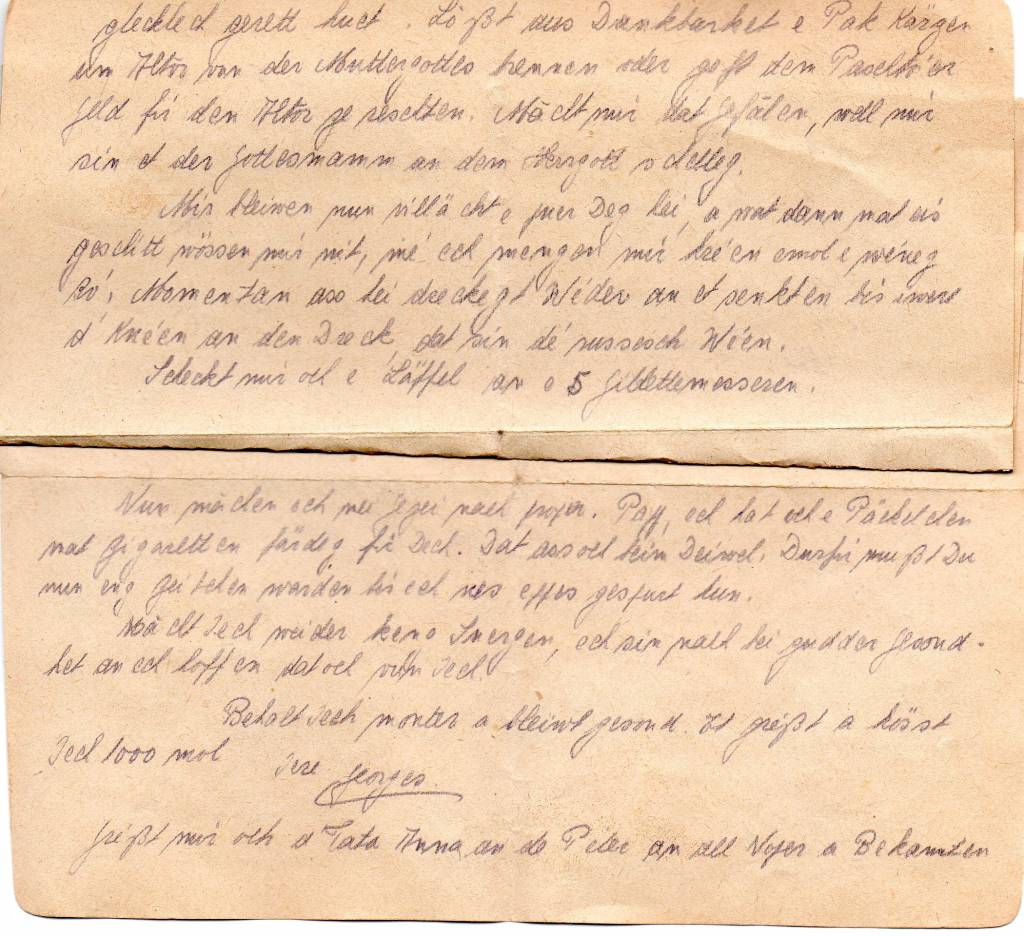 glecklech gerett huet. Lößt aus Dankbarket e Pak Käzgen
um Altor vun der Muttergottes brennen oder gefft dem Pasch
Geld fir den Altor ze Mächt mir dat Gefälen, well mir
sin et der Gottesmamm an dem Hergott scholleg.
Mir bleiwen nun villächt e puer Deg hei, a wat dann mat eis
geschitt wössen mir nit, mé ech mengen mir kréen emol e wéneg
Ró. Momentan ass hei dreckegt Wéder an et senkt een bis iwert
d' Knéen an den Dreck, dat sin dé russesch Wéen.
Scheckt mir och e Läffel an e 5 Gillettemesseren.
Nun mächen ech nach Papp, ech hat och e Päckelchen
mat Zigaretten färdeg fir Dech. Dat ass och beim Deiwel. Durfir mußt Du
nun eng Zeitchen warden bis ech nes eppes gespuert hun.
Mächt Iech weider keng Suergen, ech sin nach bei gudder Gesond-
het an ech hoffen dat och vun Iech.
Behalt Iech monter a bleiwt gesond. Et gréißt a kösst
Iech 1000 mol Iere Georges
Gréißt mir och d'Tata Anna an de Peter an all Noper a Bekannten